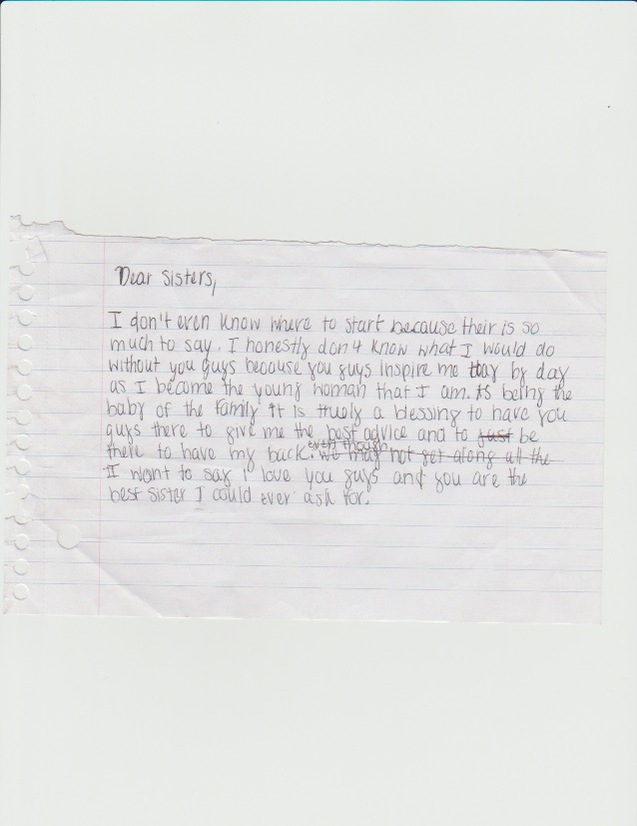 Dear Sisters,
I don't even know where to start because their is so
much to say. I honestly don't know what I would do
without you guys because you guys inspire me day by day
as I become the young woman that I am. As being the
baby of the family it is truely a blessing to have you
guys there to give me the best advice and to just be
even though
there to have my back. we may not get along all the
I want to say i love you guys and you are the
best sister I could ever ask for.